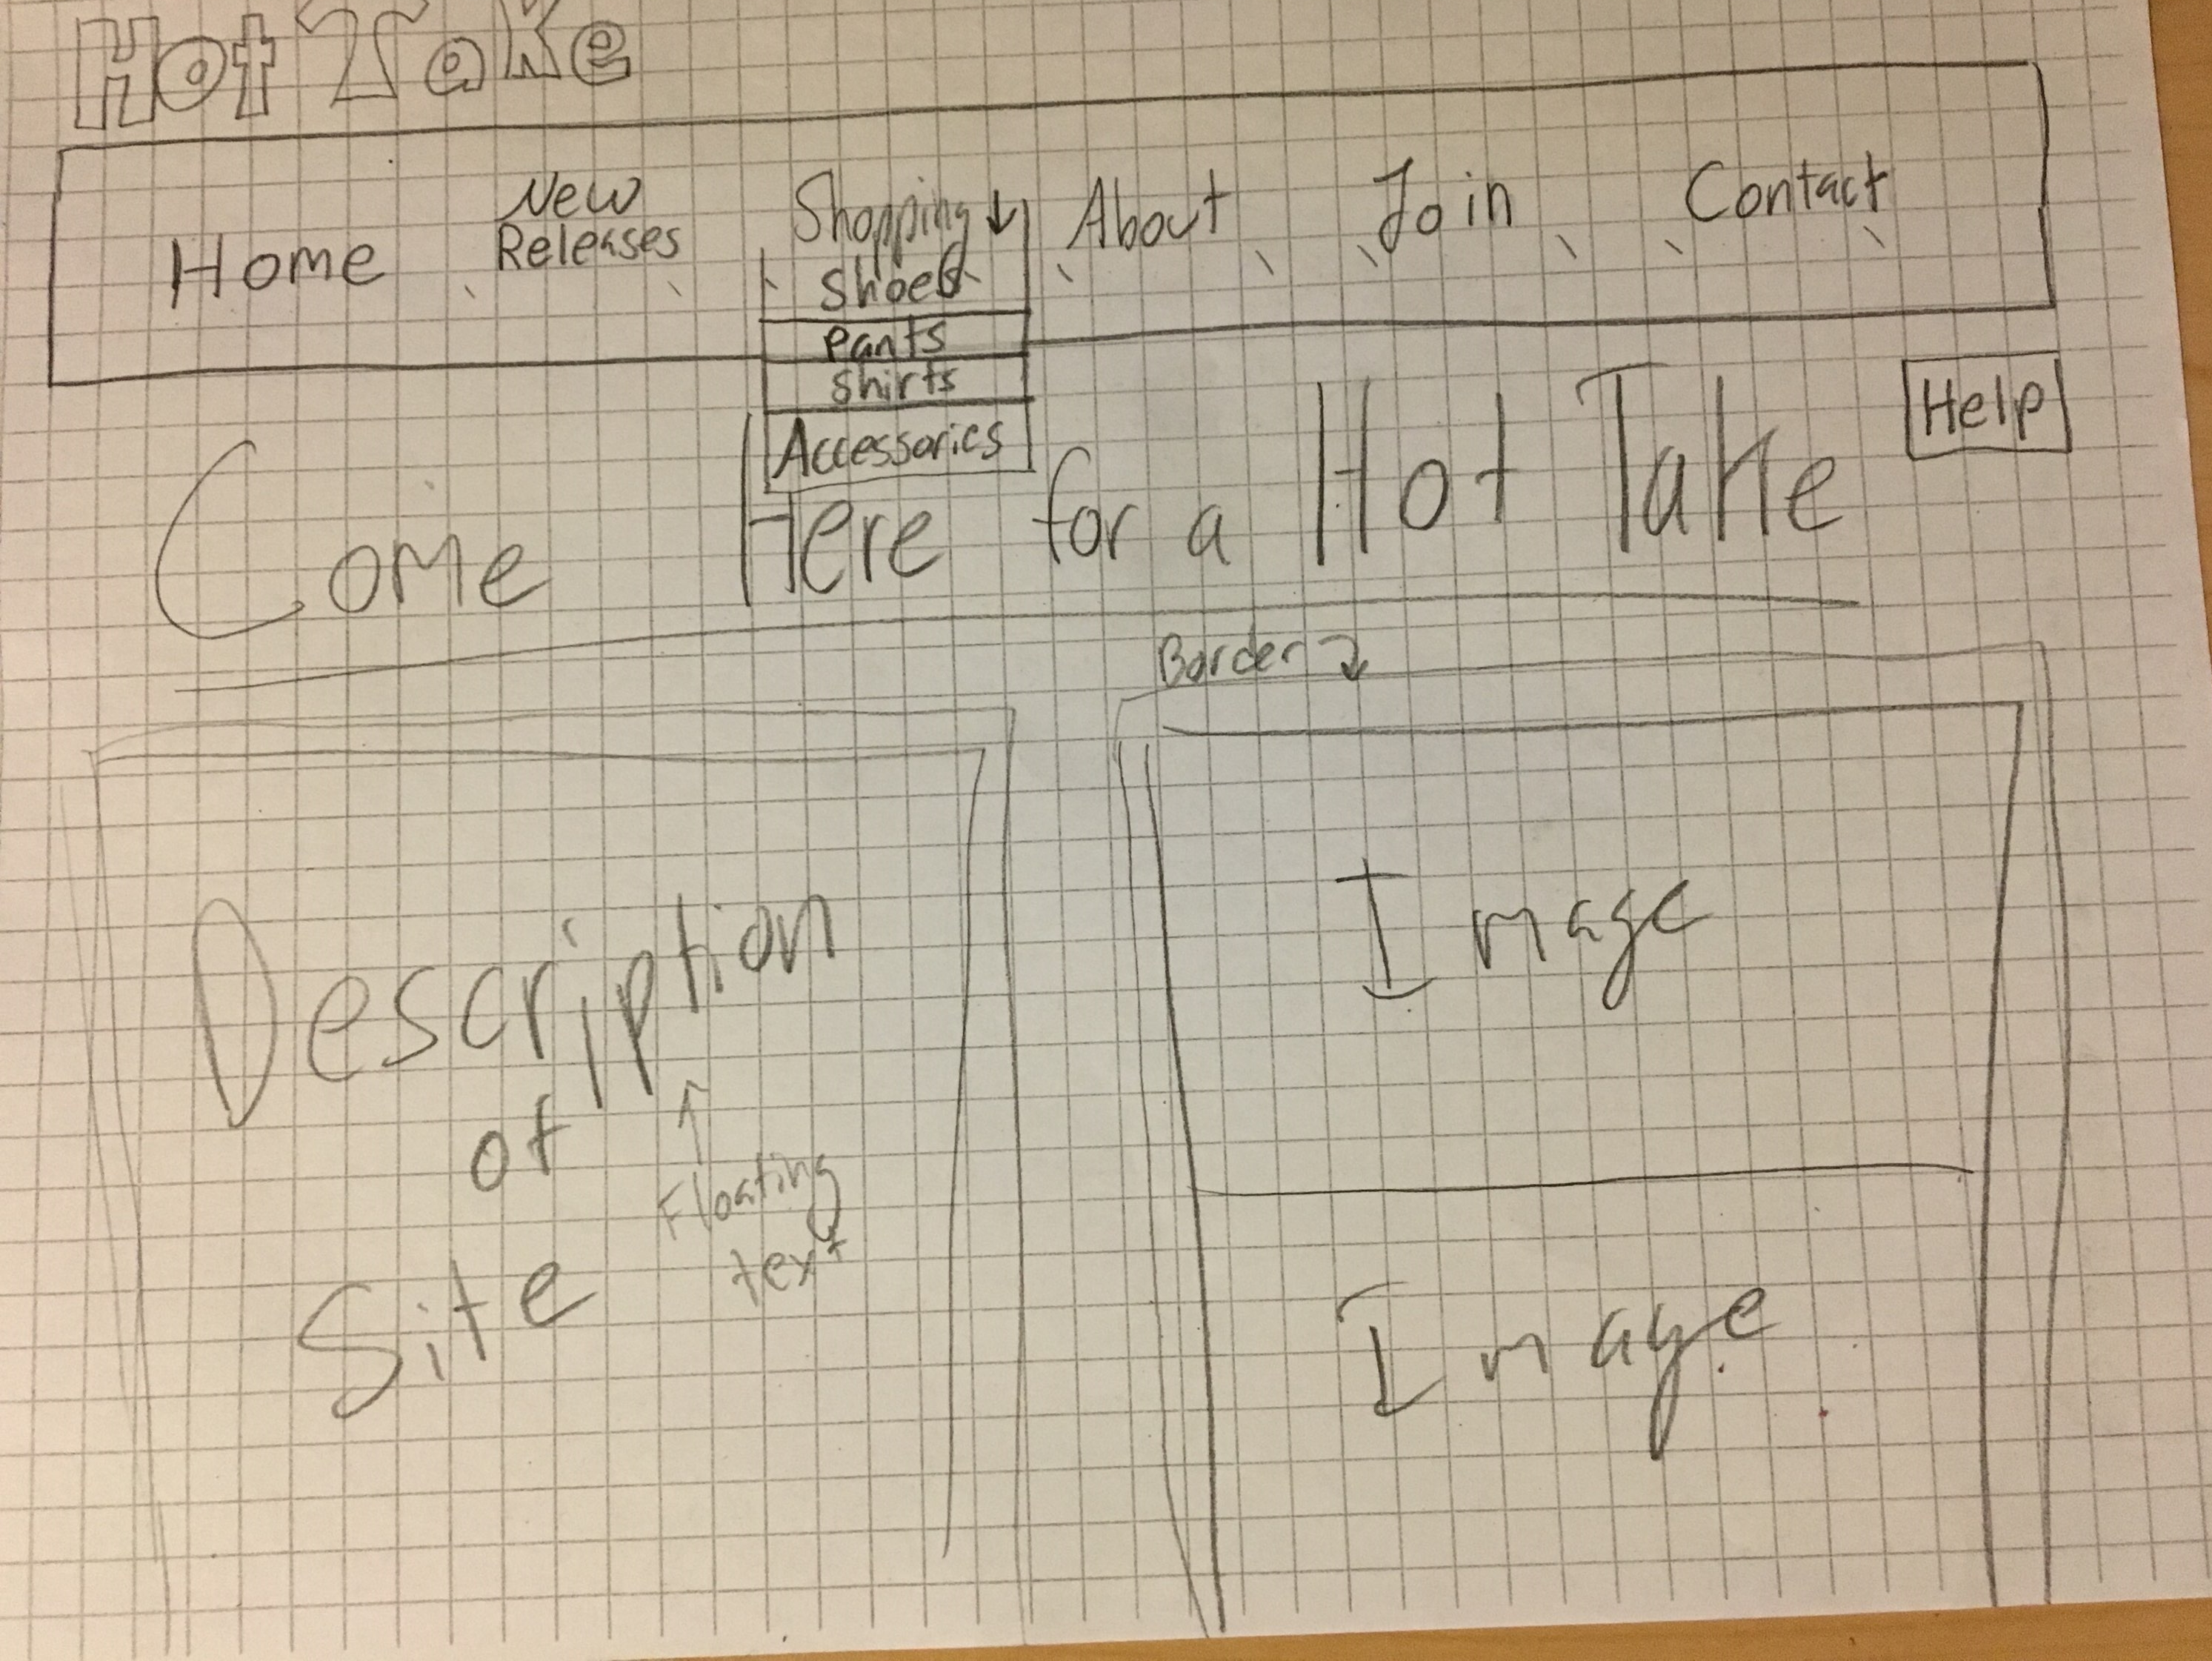 Hot Take
Home
New
Releases
Shopping ↓
About
Join
Contact
Shoes
Pants
Shirts
Accessories
Help
Come Here for a Hot Take
Border
Description
of
Site
Floating
text
Image
Image